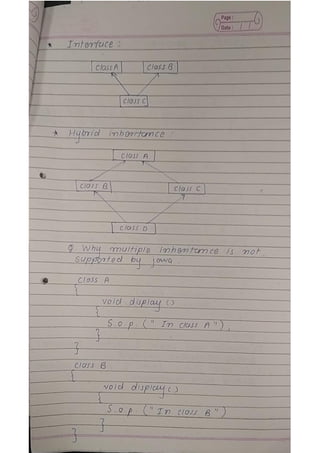 Page :
Date : / /
* Interface :
class A class B
class C
* Hybrid inheritance :
class A
class B class C
class D
Q Why multiple inheritance is not
supported by java.
class A
{
void display ()
{
S.o.p. (" In class A ");
}
}
class B
{
void display ()
{
S.o.p ("In class B ")
}
}